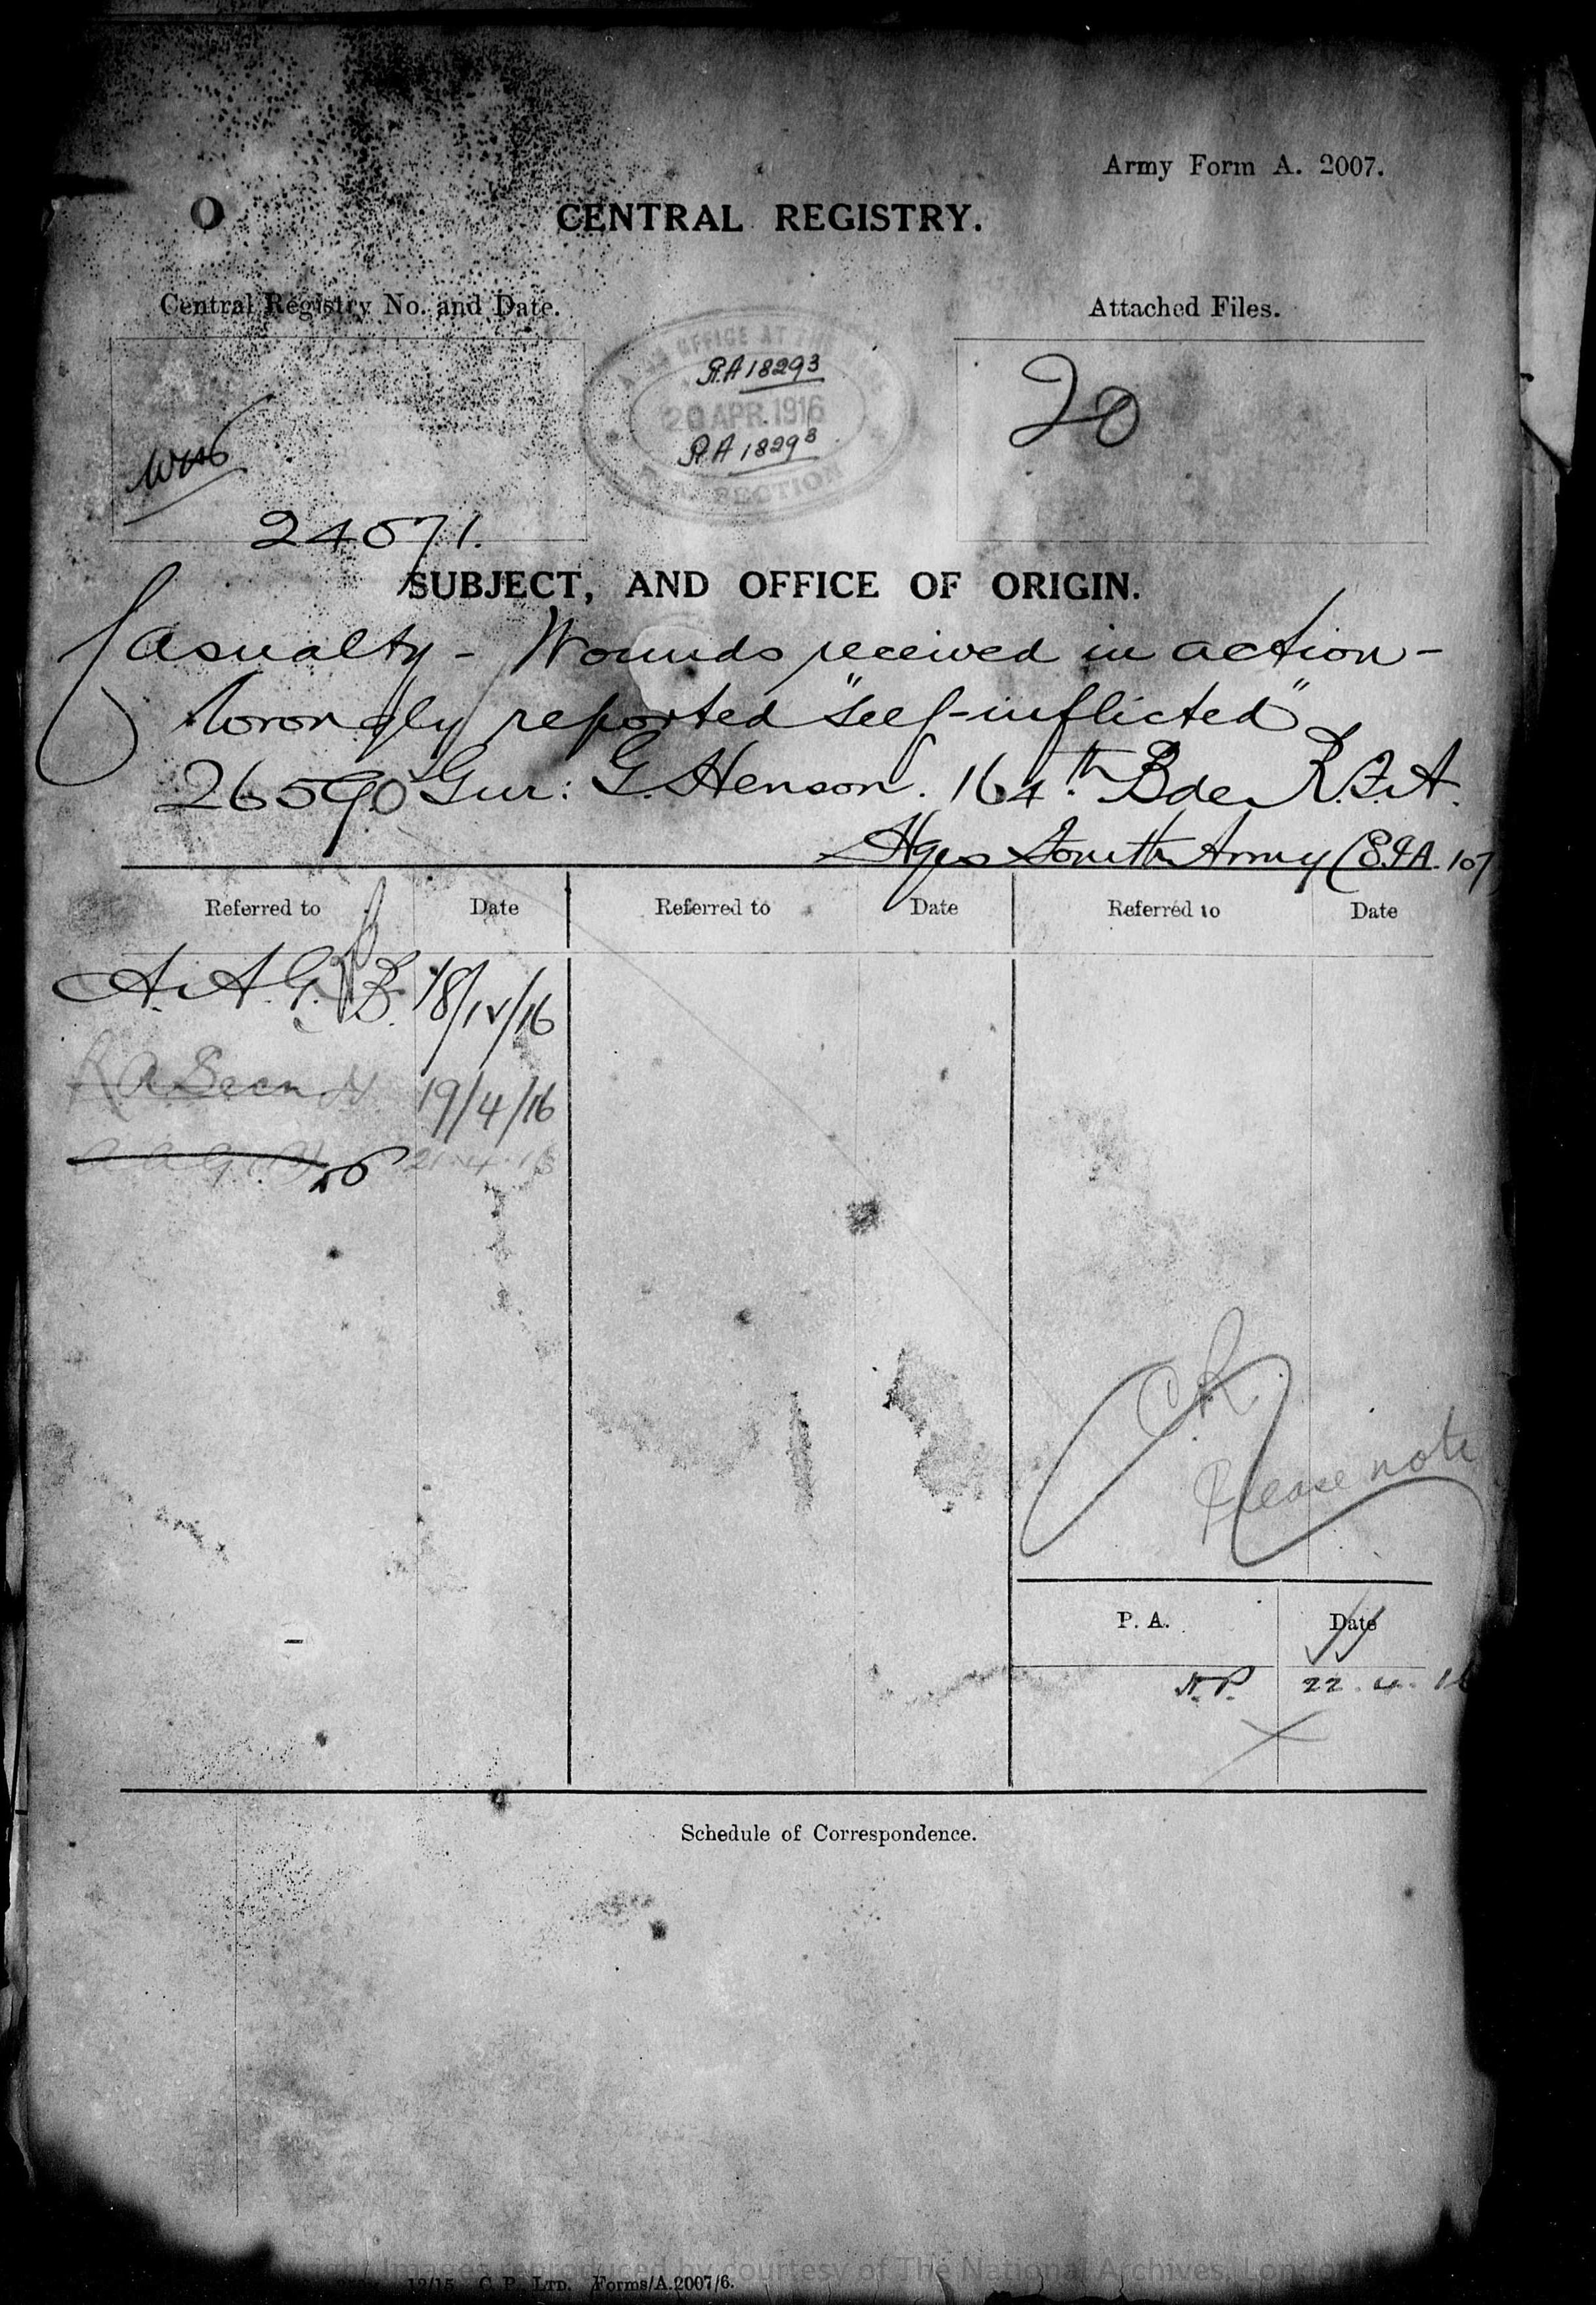 Army Form A. 2007.
CENTRAL REGISTRY.
Central Registry No. and Date.
Attached Files.
OFFICE AT THE
R.A 18293
20 APR. 1916
R.A 18293
SECTION
20
24571.
SUBJECT, AND OFFICE OF ORIGIN.
Casualty - Wounds received in action -
Wrongly reported "self-inflicted"
26590 Gnr: G. Henson. 164th Bde R.F.A.
Hqrs Fourth Army (E.9A. 107
Referred to Date Referred to Date Referred to Date
A.A.G. B. 18/IV/16
R A Secn 19/4/16
A A G (B) 21.4.16
C.R.
Please note
P. A. Date
N.P. 22.4.16
Schedule of Correspondence.
Images reproduced by courtesy of The National Archives, London
12/15 C. P., LTD. Forms/A.2007/6.